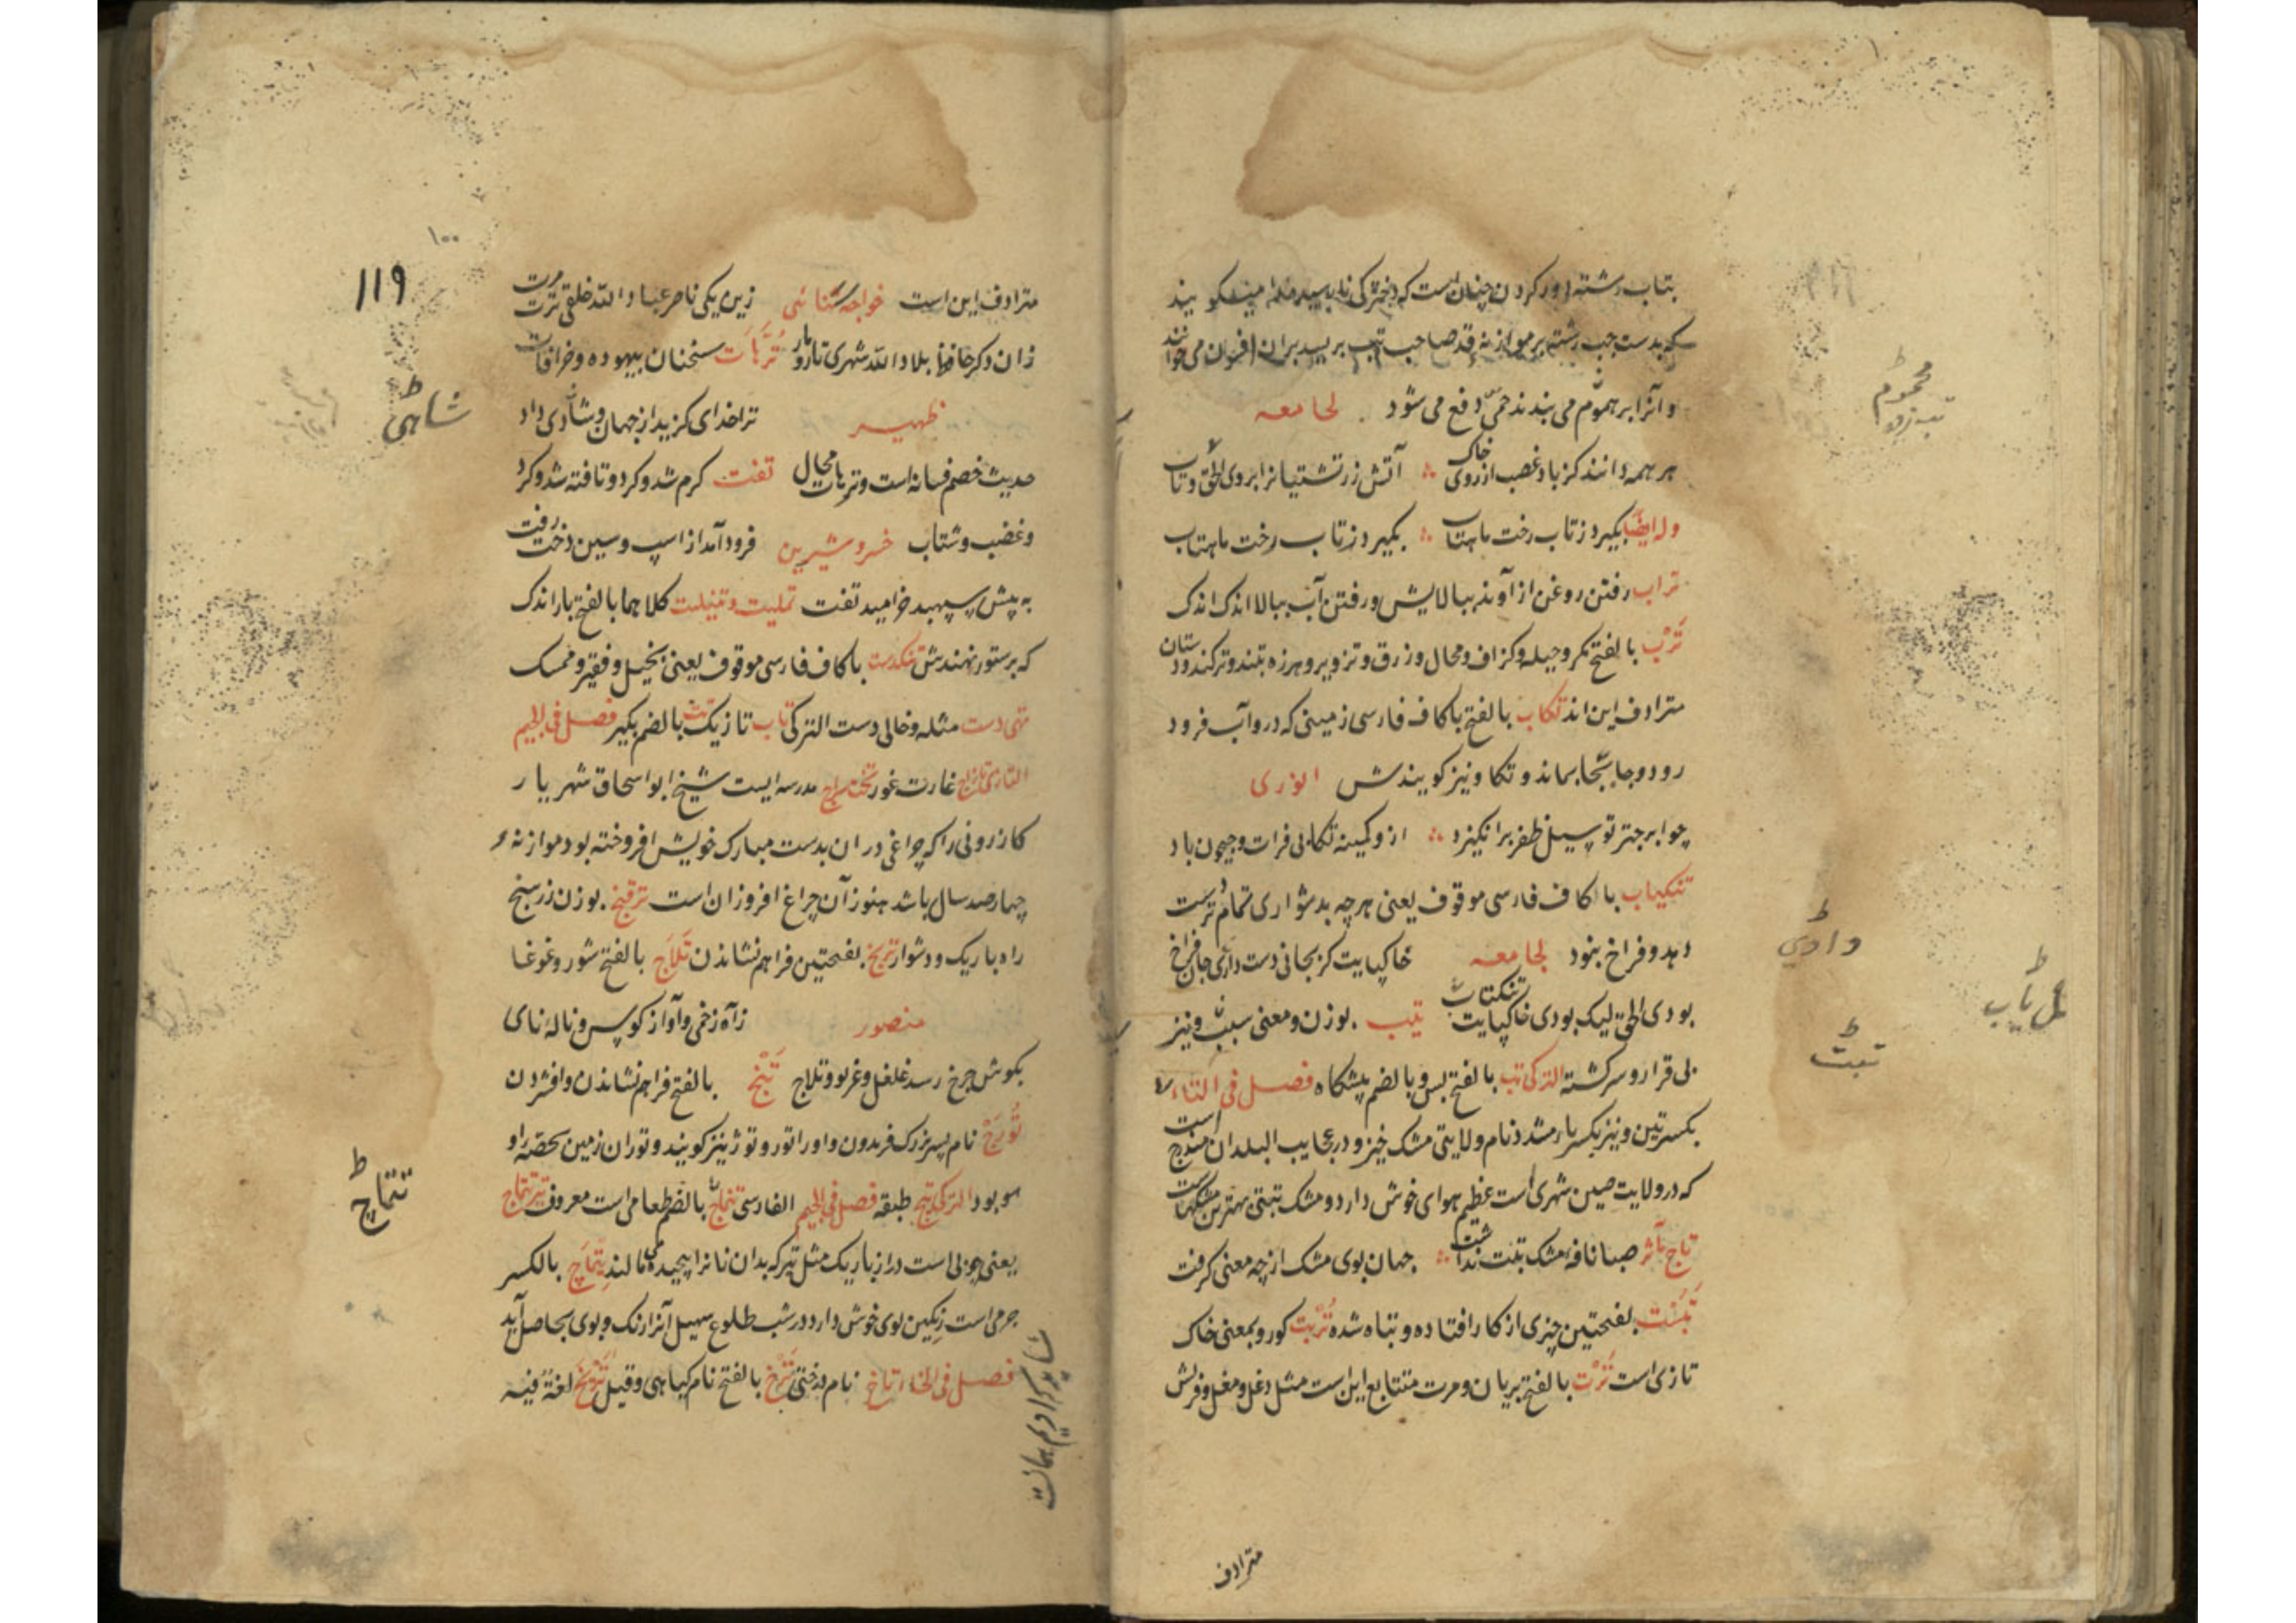 بتاب رشته دور کردن چنان است که دخترکی نابالسیده را میکویند
که بدست چپ رشته بر موازنه قد صاحب تب بریسد بران افسون می خوانند
و آنرا بر هموم می بندند حمی دفع می شود لجامعه
هر همه دانند کز باد غصب از روی خاک آتش زرتشتیانرا بروی الحق و تاب
وله ایضا بگیرد ز تاب رخت ماهتاب بگیرد ز تاب رخت ماهتاب
تراب رفتن روغن از آوند ببالایش و رفتن آب ببالا اندک اندک
ترب بالفتح مکر و حیله و کزاف و محال و زرق و تزویر و هرزه
مترادف این اند تکاب بالفتح با کاف فارسی زمینی که درو آب فرو د
رود و جابجا بماند و تکاو نیز کویندش انوری
چو ابر چتر تو سیل ظفر برانکیزد از و کمینه تکابی فرات و جیحون باد
تنکیاب با کاف فارسی موقوف یعنی هر چه بدشواری تمام ترست
دهد و فراخ بنود لجامعه خاکپایت کز بجانی دست دادی جان فراخ
بودی الحق لیک بودی خاکپایت تنکیاب تیب بوزن و معنی سیب و نیز
بی قرار و سرکشته الترکی تب بالفتح بس و بالضم پیشکاه فصل فی التاء
بکسرتین و نیز بکسر باء مشدد نام ولایتی مشک خیز و در عجایب البلدان مندرج است
که در ولایت صین شهری است عظیم هوای خوش دارد و مشک تبتی بهترین مشکهاست
تاج مآثر صبا نافه مشک تبت نداشت جهان بوی مشک از چه معنی کرفت
تبست بفتحتین چیزی از کار افتاده و تباه شده تربت کور و بمعنی خاک
تازی است ترت بالفتح بریان و مرت متتابع این است مثل دغل و مغل
مترادف
محموم
تب زده
وادی
تبت
یاب
۱۱۹
۱۰۰
مترادف این است خواجه سنائی زین یکی ناصر عباد الله خلقی ترت مرت
زان دکر حافظ بلاد الله شهری تار و مار ترهات سخنان بیهوده و خرافات
ظهیر ترا خدای کزید از جهان و شادی داد
حدیث خصم فسانه است و ترهات محال تفت کرم شد و کرد و تافته شد و کرد
و غضب و شتاب خسرو شیرین فرود آمد از اسپ و سیمین درخت رفت
به پیش سپهبد خرامید تفت تملیت و تنیلت کلاهما بالفتح بار اندک
که بر ستور نهندش تنکدست با کاف فارسی موقوف یعنی بخیل و فقیر و ممسک
تهی دست مثله و خالی دست الترکی تاب تازیک تت بالضم بگیر فصل فی الجیم
التازی تاراج غارت غور تخت سراج مدرسه ایست شیخ ابو اسحاق شهریار
کازرونی را که چراغی دران بدست مبارک خویش افروخته بود موازنه
چهارصد سال باشد هنوز آن چراغ افروزان است ترفنج بوزن زرسنج
راه باریک و دشوار ترنج بفتحتین فراهم نشاندن تلاج بالفتح شور و غوغا
منصور ز آه زخمی و آواز کوس و ناله نای
بکوش چرخ رسد غلغل و غریو و تلاج تنج بالفتح فراهم نشاندن و افشردن
تورج نام پسر بزرک فریدون و او را تور و توژ نیز کویند و توران زمین بحصه او
بود الترکی تبج طبقه فصل فی الجیم الفارسی تتماج بالضم طعامی است معروف تیر تتماج
یعنی چوبی است دراز باریک مثل تیر که بدان نانرا پیچیده می مالند تیماج بالکسر
جرمی است رنکین بوی خوش دارد در شب طلوع سهیل آنرا رنک و بوی بحاصل آید
فصل فی الخاء تاخ نام درختی ترخ بالفتح نام کیاهی و قیل لغة فیه
شاهی
تتماج